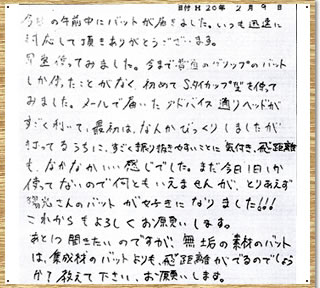 日付 H 20年 2月 9日
今日の午前中にバットが届きました。いつも迅速に
対応して頂きありがとうございます。
早速使ってみました。今まで普通のグリップのバット
しか使ったことがなく、初めてS.タイカップ型を使って
みました。メールで届いたアドバイス通りヘッドが
すごく利いて、最初は、なんかびっくりしましたが
打ってるうちに、すごく振り抜きやすいことに気付き、飛距離
も、なかなかいい感じでした。まだ今日1日しか
使ってないので何ともいえませんが、とりあえず
さんのバットが大好きになりました!!!
これからもよろしくお願いします。
あと1つ聞きたいのですが、無垢の素材のバット
は、集成材のバットよりも、飛距離がでるのでしょう
か?教えて下さい、お願いします。